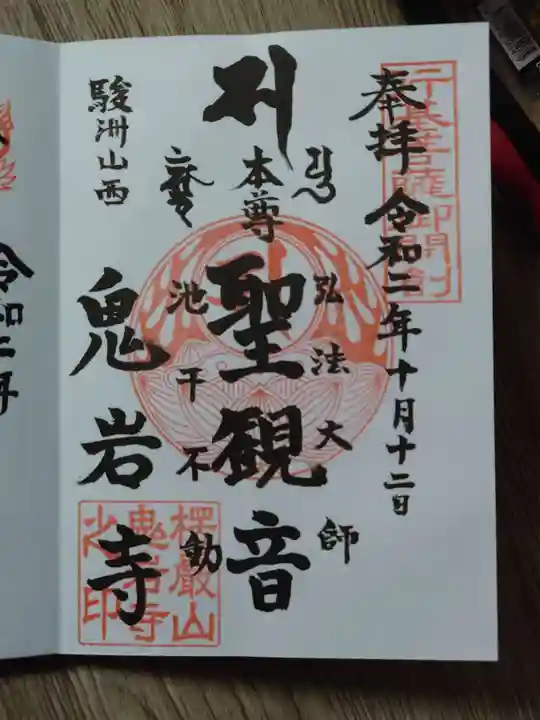 奉拝
令和二年十月十二日
行基菩薩御開創
弘法大師
本尊
聖観音
池干不動
駿洲山西
鬼岩寺
楞厳山
鬼岩寺
之印
令和二年